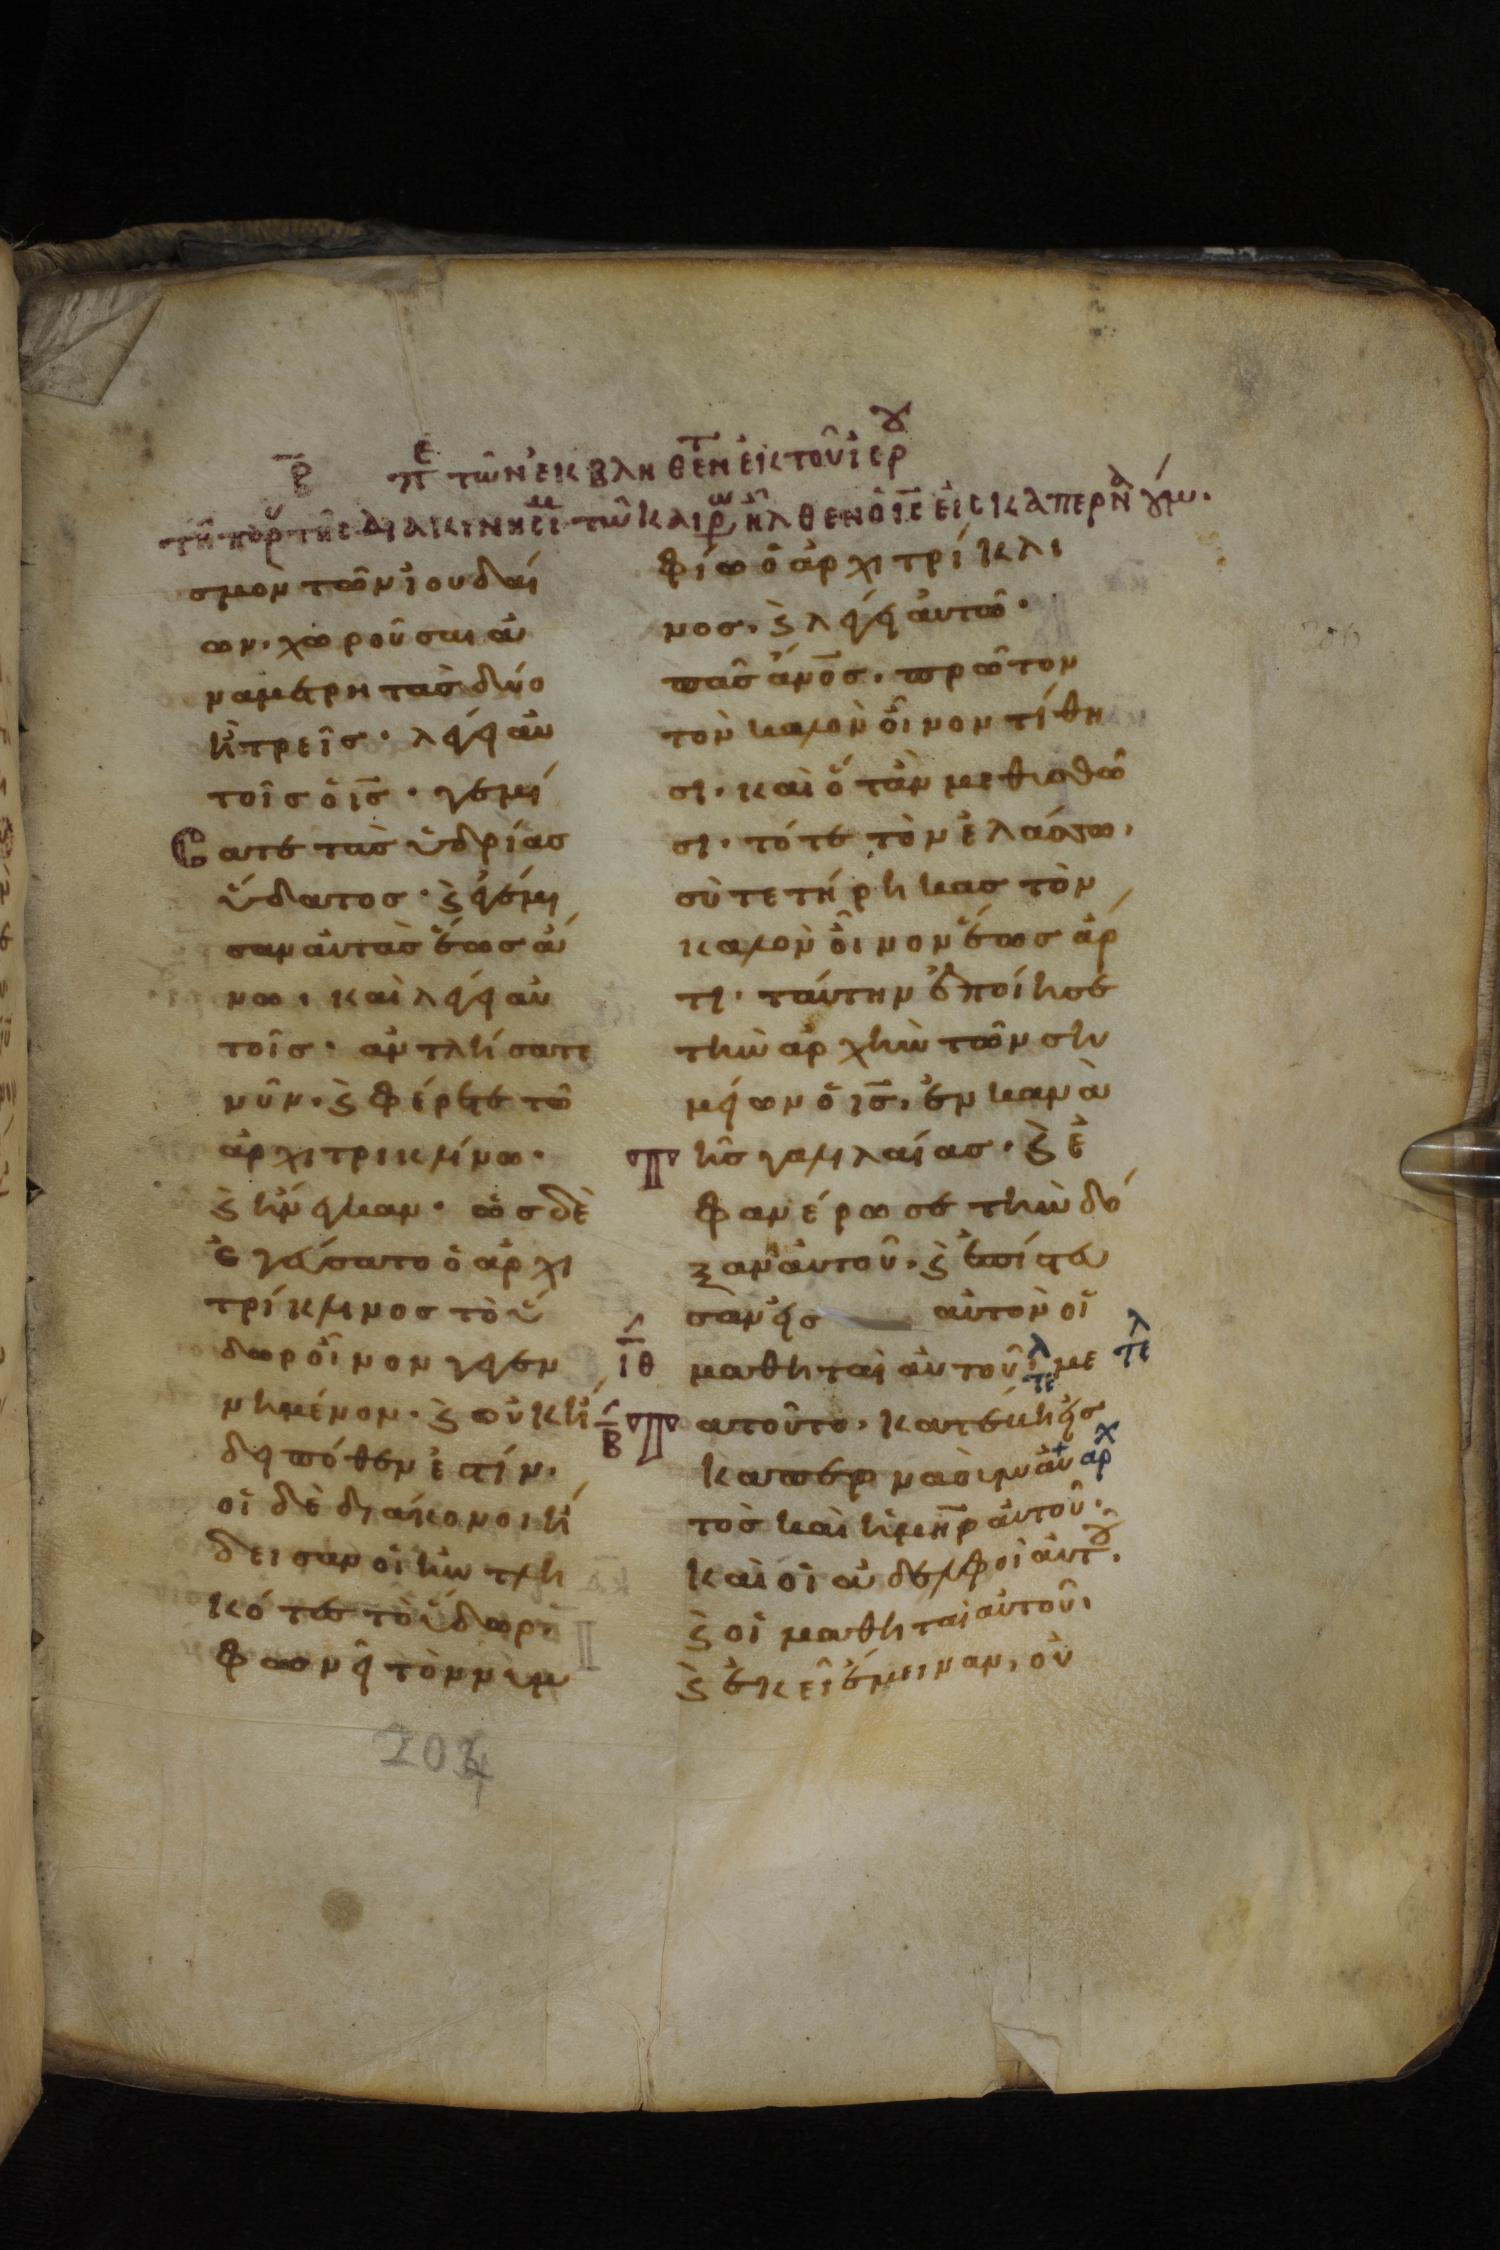 β πε τῶν ἐκβληθέντ εἰκ τοῦ ἱερου
τῇ παρ τῆς διακινησιμ τῶ καιρω ἦλθεν ὁ ις εἰς καπερναγμ.
σμὸν τῶν ἰουδαί
ων· χωροῦσαι ἀ
ναμετρητὰς δύο
ἢ τρεῖς· λέγει αὐ
τοῖς ὁ ις· γεμί
σατε τὰς ὑδρίας
ὕδατος· ϗ ἐγέμι
σαν αὐτὰς ἕως ἄ
νω· καὶ λέγει αὐ
τοῖς· ἀντλήσατε
νῦν· ϗ φέρετε τῶ
ἀρχιτρικλίνω·
ϗ ἤνεγκαν· ὡς δὲ
ἐγεύσατο ὁ ἀρχι
τρίκλινος τὸ ὕ
δωρ οἶνον γεγεν
νημένον· ϗ οὐκ ἤ
δει πόθεν ἐστίν·
οἱ δὲ διάκονοι ἤ
δεισαν οἱ ἠντλη
κότες τὸ ὕδωρ·
φωνεῖ τὸν νυμ
φίω ὁ ἀρχιτρίκλι
νος· ϗ λέγει αὐτῶ·
πᾶς ἀνος· πρῶτον
τὸν καλὸν οἶνον τίθη
σι· καὶ ὅταν μεθυσθῶ
σι· τότε τὸν ἐλάσσω·
σὺ τετήρηκας τὸν
καλὸν οἶνον ἕως ἄρ
τι· ταύτην ἐποίησε
τὴν ἀρχὴν τῶν ση
μείων ὁ ις· ἐν κανὰ
τῆς γαλιλαίας· ϗ ἐ
φανέρωσε τὴν δό
ξαν αὐτοῦ· ϗ ἐπίστευ
σαν εἰς αὐτὸν οἱ
ιθ μαθηταὶ αὐτοῦ· τελ με τελ
β τατοῦτο· κατέβη εἰς
καπερναοὺμ αὐ αρχ
τὸς καὶ ἡ μηρ αὐτοῦ·
καὶ οἱ ἀδελφοὶ αὐτου·
ϗ οἱ μαθηταὶ αὐτοῦ·
ϗ ἐκεῖ ἔμειναν· οὐ
204